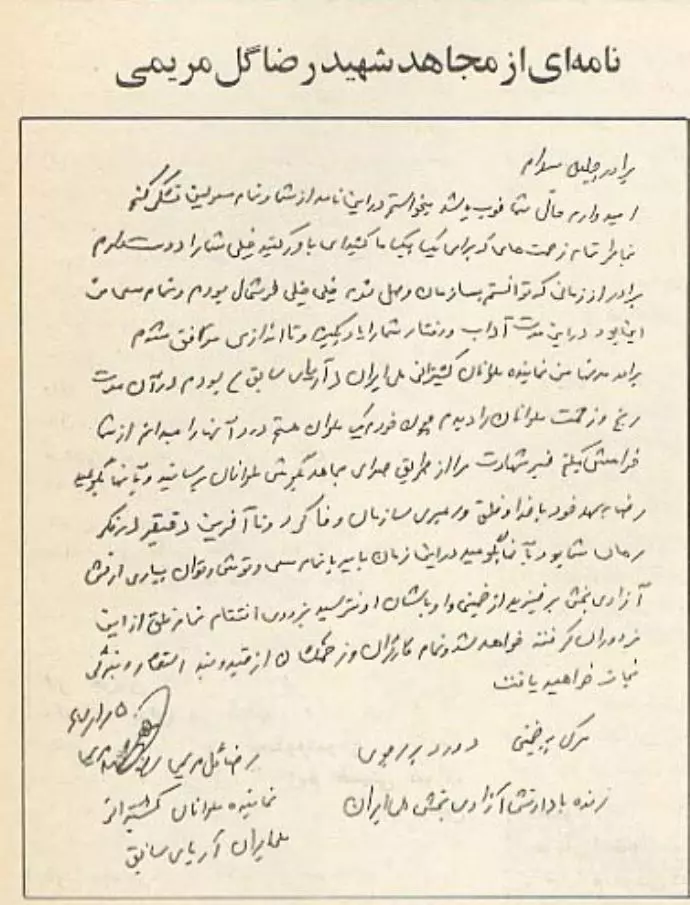 نامه‌ای از مجاهد شهید رضا گل مریمی
برادر جلیل سلام
امیدوارم حال شما خوب باشد میخواستم در این نامه از شما و تمام مسولین تشکر کنم
بخاطر تمام زحمت های که برای یک یک ما کشیدای باور کنید خیلی شما را دوست دارم
برادر از زمانی که توانستم بسازمان وصل شوم خیلی خیلی خوشحال بودم و تمام سعی من
این بود در این مدت آداب و رفتار شما را یاد بگیرم و تا اندازی موافق شدم
برادر من نماینده ملوانان کشتیرانی ملی ایران آریای سابق بودم در آن مدت
رنج و زحمت ملوانان را دیدم چون خودم یک ملوان هستم درد آنها را میدانم از شما
خواهش میکنم خبر شهادت مرا از طریق صدای مجاهد بگوش ملوانان برسانید و به آنها بگویید
رضا به عهد خود با خدا و خلق و رهبری سازمان وفا کرد و تا آخرین دقیقه در فکر
رهای شما بود به آنها بگویید در این زمان باید با تمام سعی و کوشش و توان بیاری ارتش
آزادی بخش برخیزید از خمینی و اوباشان او نترسید بزودی انتقام تمام خلق از این
مزدوران گرفته خواهد شد و تمام کارگران و زحمتکشان از قید و بند استعمار و بندگی
نجات خواهید یافت
مرگ بر خمینی درود بر رجوی
زنده باد ارتش آزادی بخش ملی ایران
رضا گل مریمی
نماینده ملوانان کشتیرانی
ملی ایران آریای سابق